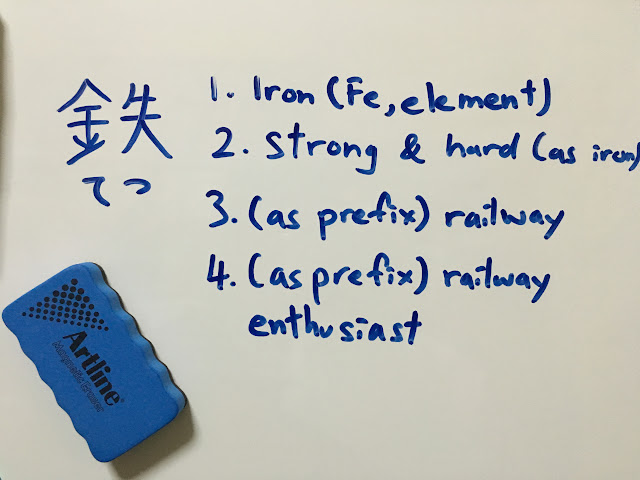 鉄
てつ
1. Iron (Fe, element)
2. Strong & hard (as iron)
3. (as prefix) railway
4. (as prefix) railway
enthusiast
Artline
Magnetic Eraser